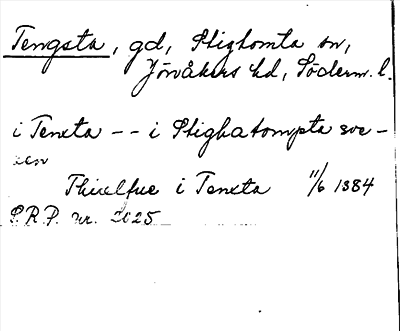 Tengsta, gd, Stigtomta sn,
Jönåkers hd, Söderm. l.
i Tenxta -- i Stighatompta soc-
ken
Thiælfue i Tenxta 11/6 1384
S.R.P. nr. 2025